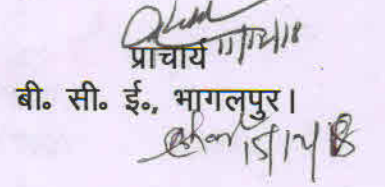 11/12/18
प्राचार्य
बी॰ सी॰ ई॰, भागलपुर।
15/12/18